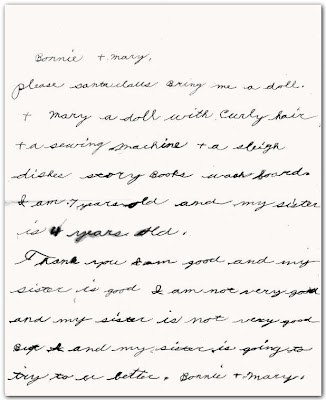 Bonnie + mary.
please santa claus Bring me a doll.
+ mary a doll with Curly hair
+ a sewing machine + a sleigh
dishes story Books wash board.
I am 7 years old and my sister
is 4 years old.
Thank you I am good and my
sister is good I am not very good
and my sister is not very good
But I and my sister is going to
try to be better. Bonnie + Mary.